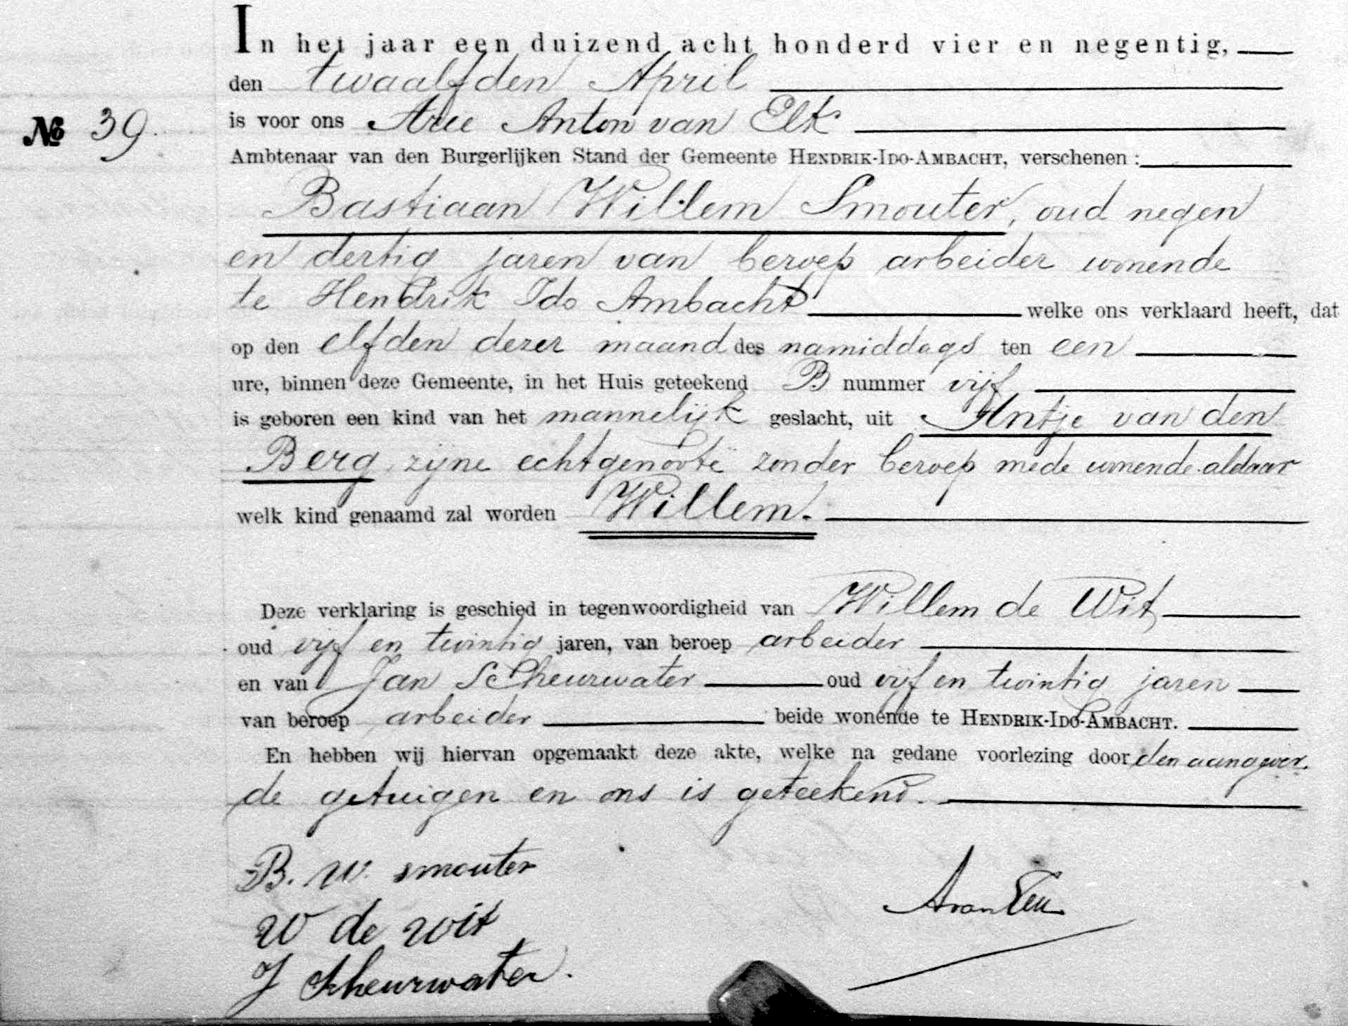 In het jaar een duizend acht honderd vier en negentig,
den twaalfden April
№ 39.
is voor ons Arie Anton van Elk
Ambtenaar van den Burgerlijken Stand der Gemeente HENDRIK-IDO-AMBACHT, verschenen:
Bastiaan Willem Smouter, oud negen
en dertig jaren van beroep arbeider wonende
te Hendrik Ido Ambacht welke ons verklaard heeft, dat
op den elfden dezer maand des namiddags ten een
ure, binnen deze Gemeente, in het Huis geteekend B nummer vijf
is geboren een kind van het mannelijk geslacht, uit Antje van den
Berg zijne echtgenoote zonder beroep mede wonende aldaar
welk kind genaamd zal worden Willem.
Deze verklaring is geschied in tegenwoordigheid van Willem de Wit
oud vijf en twintig jaren, van beroep arbeider
en van Jan Scheurwater oud vijf en twintig jaren
van beroep arbeider beide wonende te HENDRIK-IDO-AMBACHT.
En hebben wij hiervan opgemaakt deze akte, welke na gedane voorlezing door den aangever,
de getuigen en ons is geteekend.
B. W. smouter
W de wit
J Scheurwater.
AvanElk